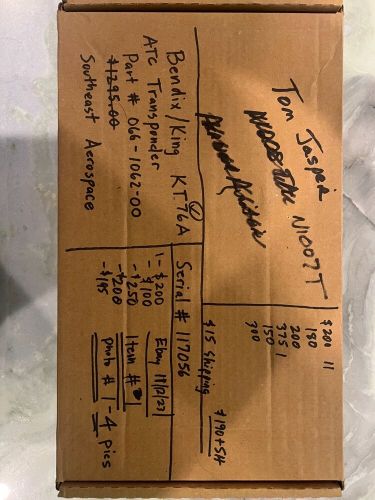 Tom Jasper
N1007T
Bendix/King KT-76A
ATC Transponder
Part # 066-1062-00
$1295.00
Southeast Aerospace
$200 11
180
200
375 1
150
300
$15 Shipping
$190+SH
Serial # 117056
1-$200
-$100
-$250
-$200
-$195
Item #
photo # 1-4 pics